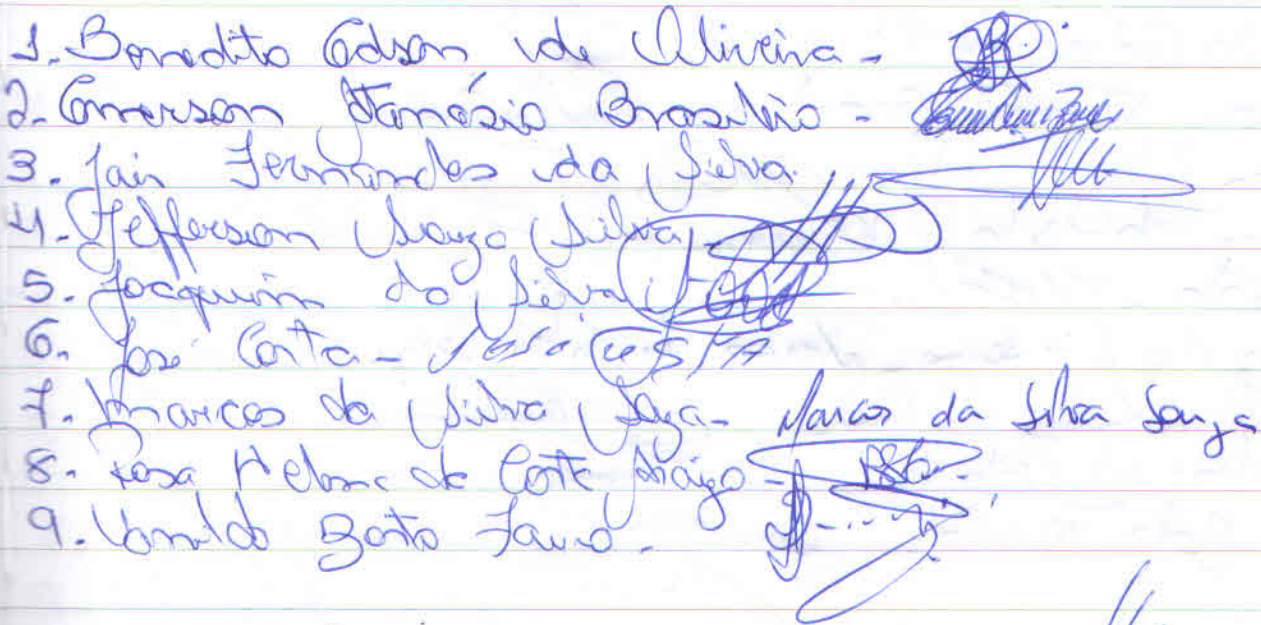 1. Benedito Edson de Oliveira -
2. Emerson Atanásio Brasílio -
3. Jair Fernandes da Silva
4. Jefferson Souza Silva -
5. Jocquim da Silva
6. José Costa - José COSTA
7. Marcos da Silva Souza - Marcos da Silva Souza
8. Rosa Helena da Costa -
9. -